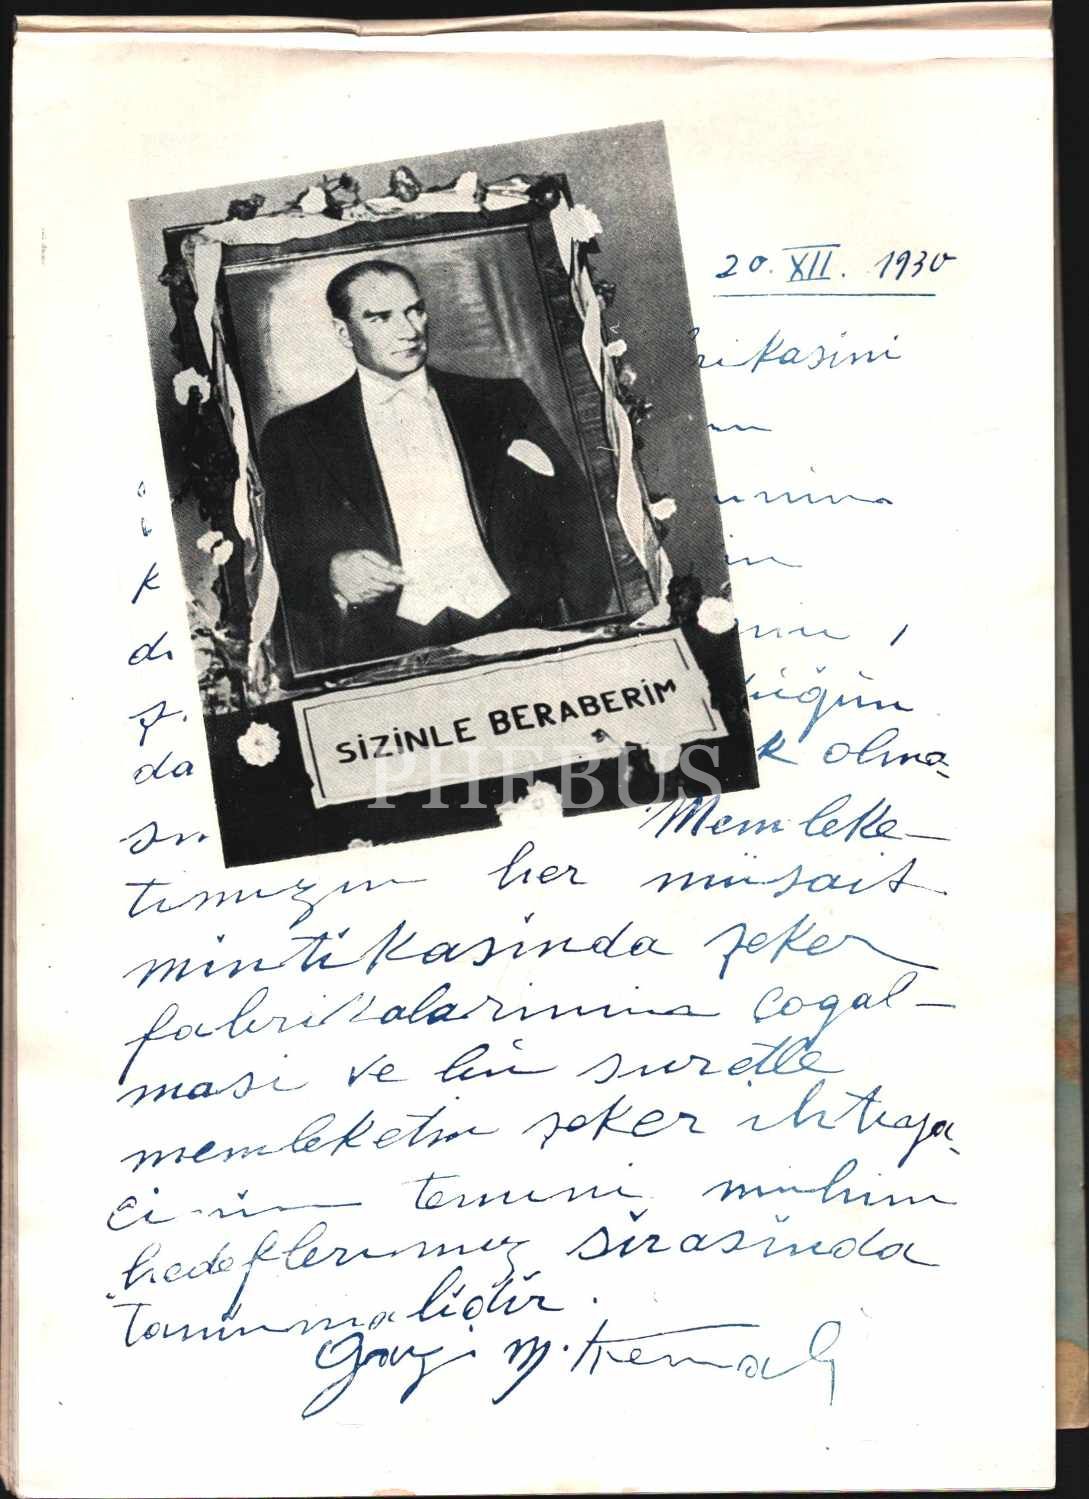 20. XII. 1930
rikasini
k
d
da
üğün
k olma-
Memleke-
timizin her müsait
mintikasinda şeker
fabrikalarinin çogal-
masi ve bu suretle
memleketin şeker ihtiya-
cinin temini mühim
hedeflerimiz sirasinda
taninmalidir.
Gazi M. Kemal
SİZİNLE BERABERİM
PHEBUS